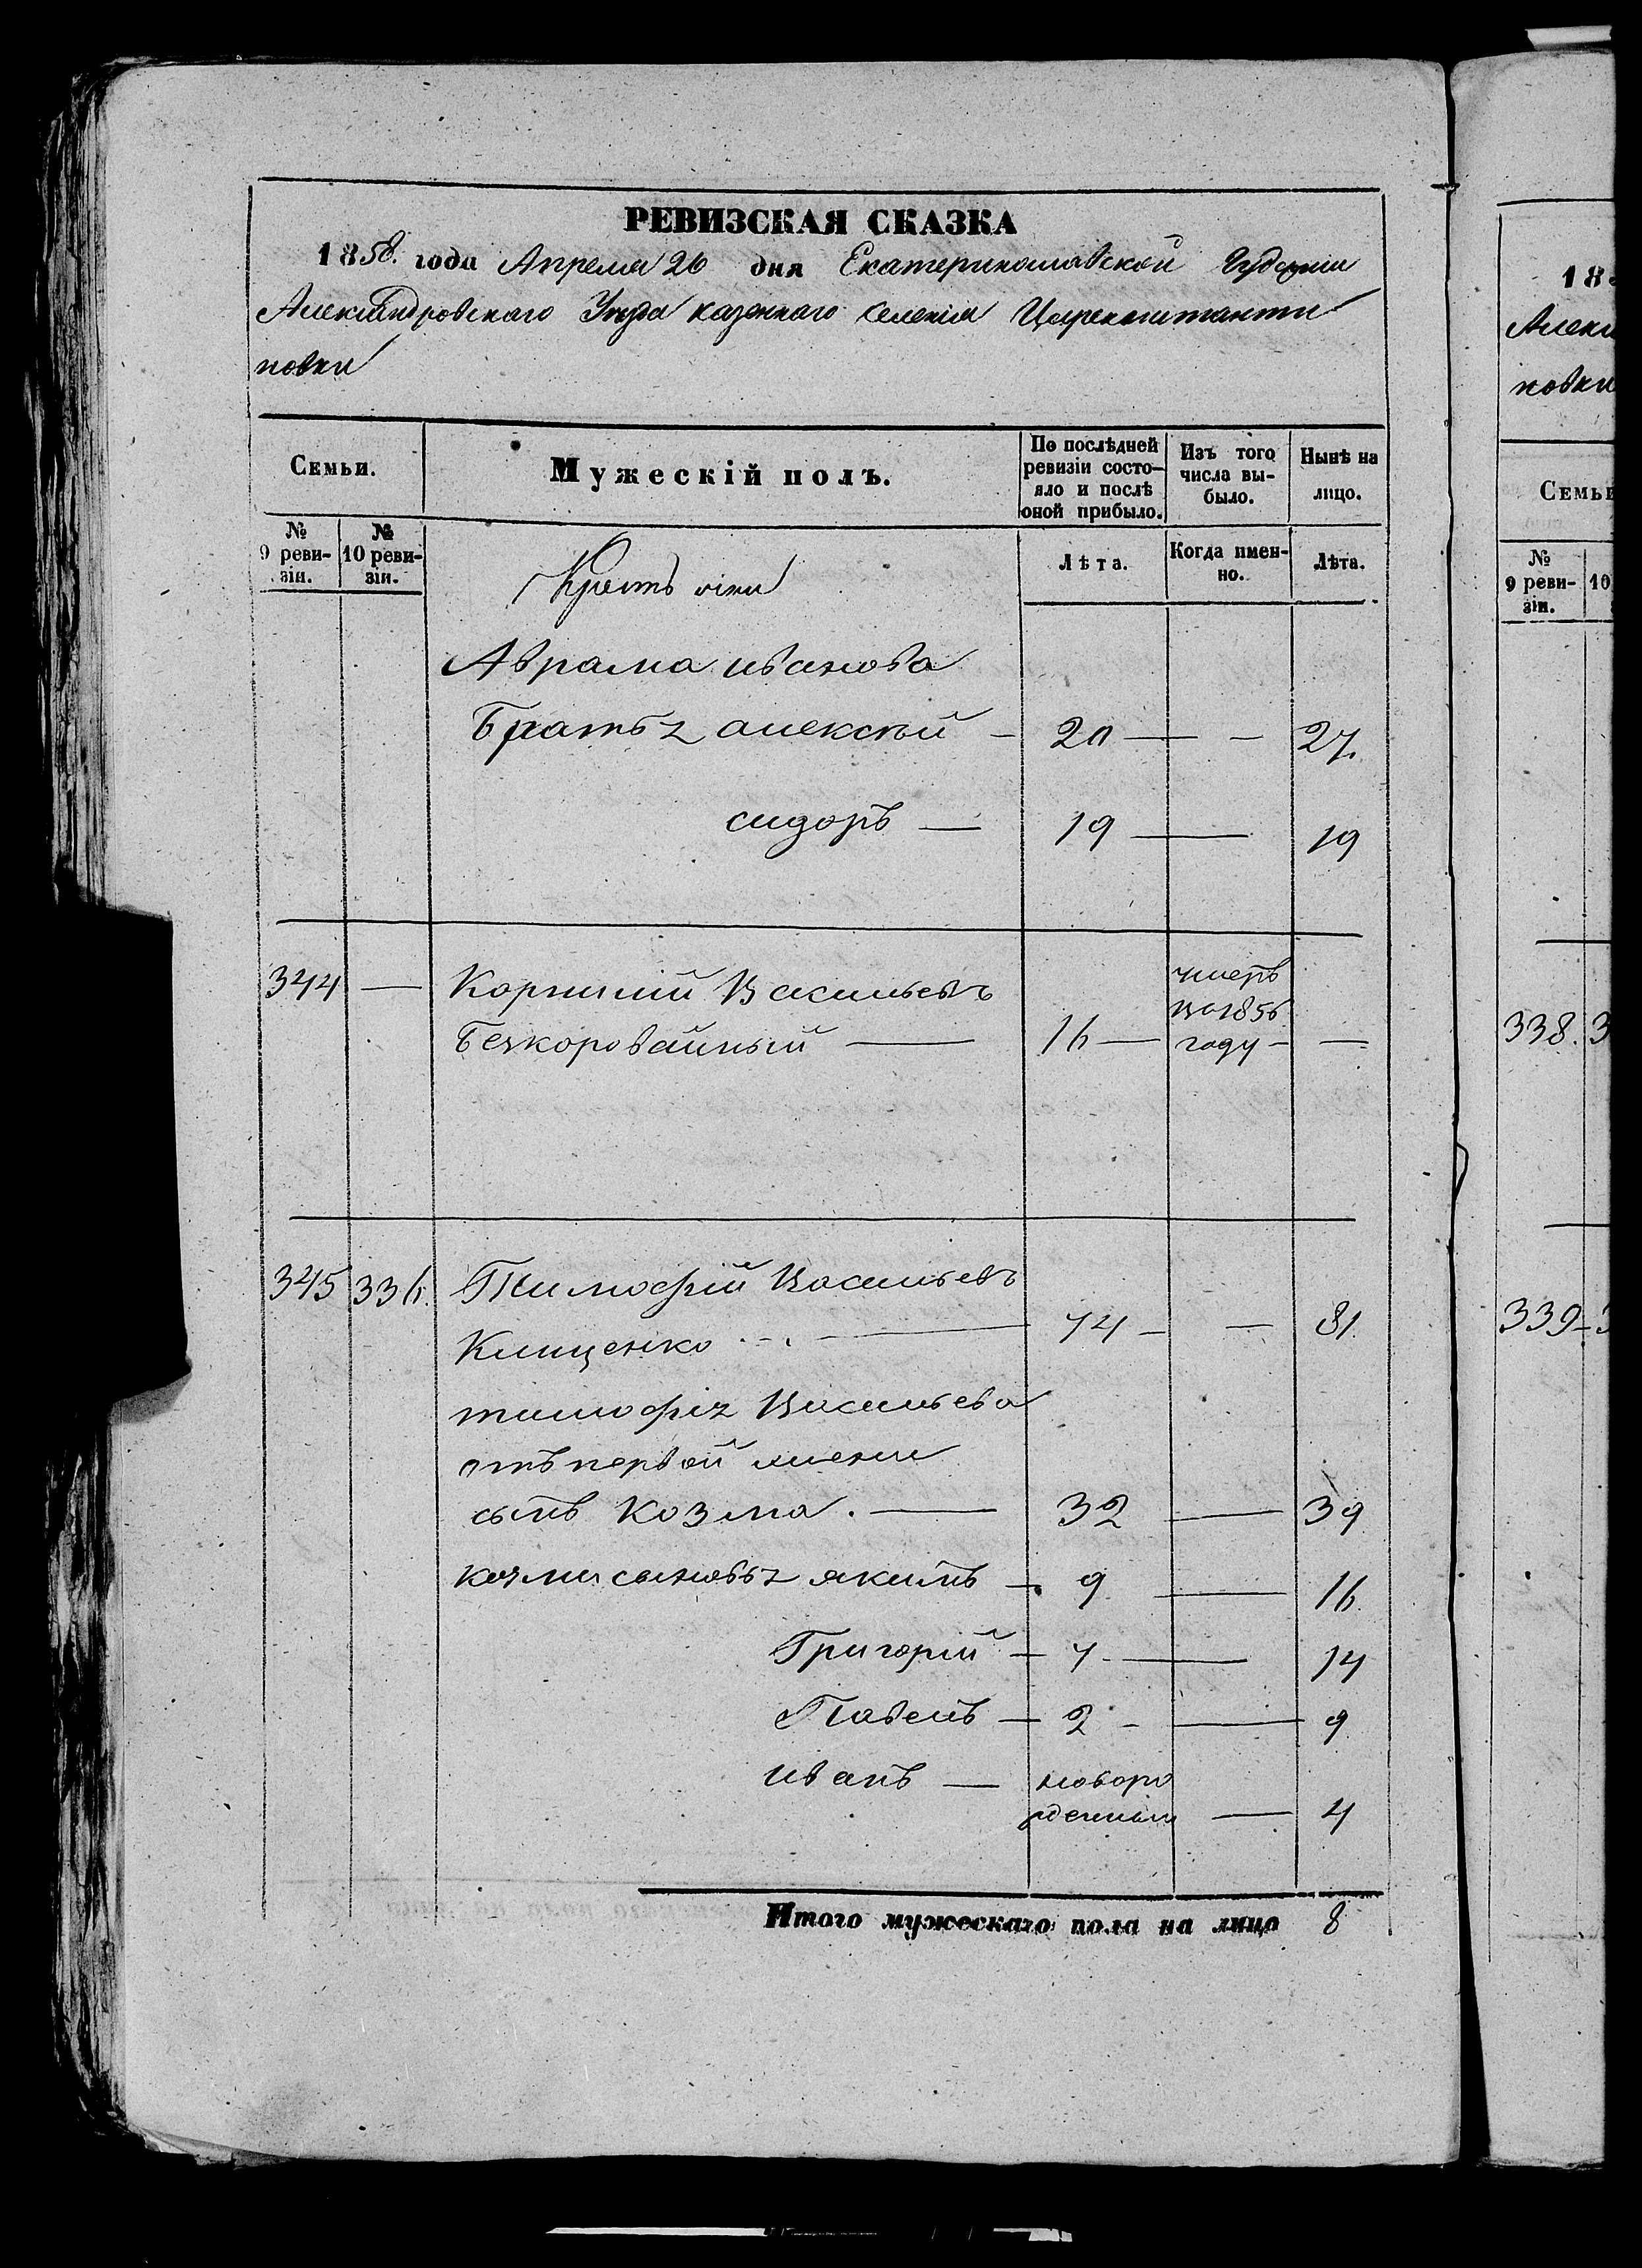 РЕВИЗСКАЯ СКАЗКА
1858. года Апреля 26 дня Екатеринославской Губерніи
Александровского Уезда казенного селенія Цареконстанти
новки
Семьи.
Мужескій полъ.
По послѣдней ревизіи состо-
яло и послѣ
оной прибыло.
Изъ того
числа вы-
было.
Нынѣ на
лицо.
№
9 реви-
зіи.
№
10 реви-
зіи.
Лѣта.
Когда имен-
но.
Лѣта.
Аврама иванова
Братья 2 алексѣй — 20 — — 27.
сидоръ — 19 — 19
344 — Корнилий Васильевъ
Безкоровайный — 16 — умеръ
во 1856
году — —
345 336. Тимофій Васильевъ
Клищенко — 74 — — 81.
тимофія Васильева
отъ первой жены
сынъ Козма. — 32 — 39
козмы сыновья 2 якимъ — 9 — 16.
Григорій — 7 — 14
Павелъ — 2 — 9
иванъ — новоро
жденный — 4
Итого мужескаго пола на лицо 8
18
Алекса
новки
Семьи
№
9 реви-
зіи.
10
338. 3
339 - 3